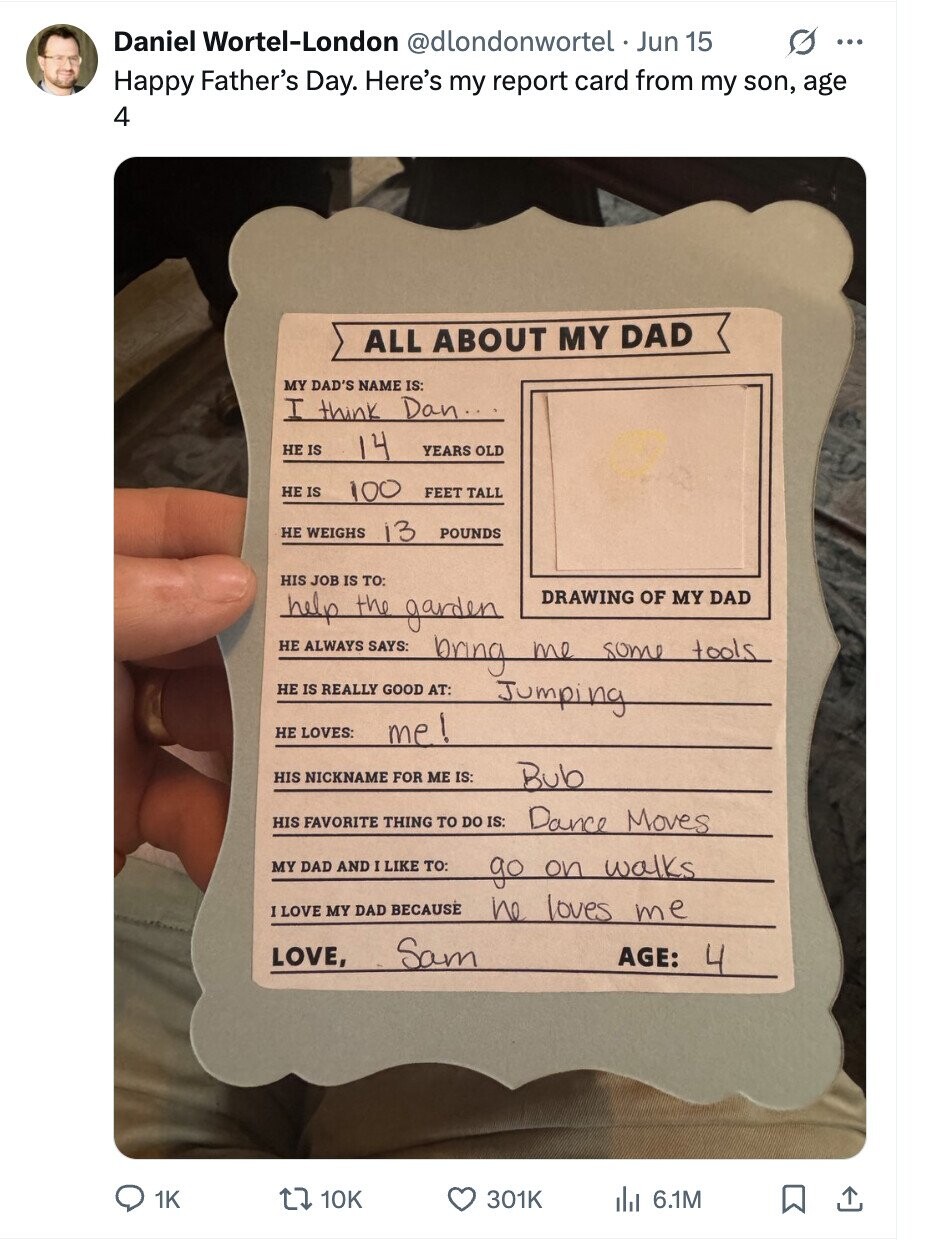 Daniel Wortel-London @dlondonwortel · Jun 15
Happy Father's Day. Here's my report card from my son, age
4
ALL ABOUT MY DAD
MY DAD'S NAME IS:
I think Dan...
HE IS 14 YEARS OLD
HE IS 100 FEET TALL
HE WEIGHS 13 POUNDS
HIS JOB IS TO:
help the garden
DRAWING OF MY DAD
HE ALWAYS SAYS: bring me some tools
HE IS REALLY GOOD AT: Jumping
HE LOVES: me!
HIS NICKNAME FOR ME IS: Bub
HIS FAVORITE THING TO DO IS: Dance Moves
MY DAD AND I LIKE TO: go on walks
I LOVE MY DAD BECAUSE he loves me
LOVE, Sam AGE: 4
1K 10K 301K 6.1M